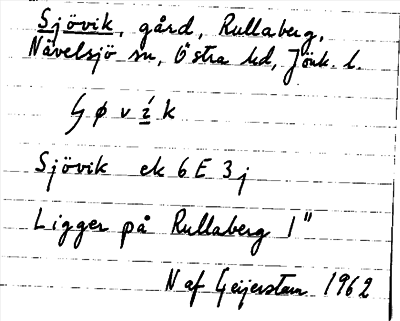 Sjövik, gård, Rullaberg,
Nävelsjö sn, Östra hd, Jönk. l.
ɧøvík
Sjövik ek 6E 3j
Ligger på Rullaberg 1"
N af Geijerstam 1962